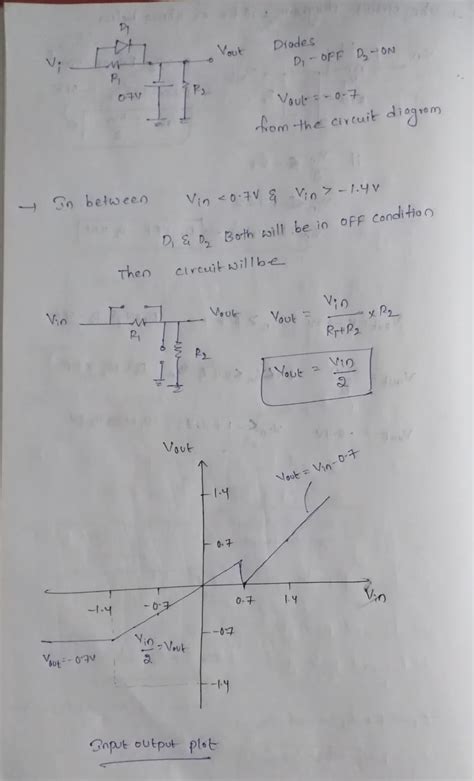 D1
Vi
Vout
R1
0.7V
R2
Diodes
D1-OFF D2-ON
Vout = -0.7
from the circuit diagram
→ In between Vin < 0.7V & Vin > -1.4V
D1 & D2 Both will be in OFF condition
Then circuit will be
Vin
Vout
R1
R2
Vout = Vin / R1+R2 × R2
Vout = Vin / 2
Vout
Vout = Vin - 0.7
1.4
0.7
-1.4
-0.7
0.7
1.4
Vin
-0.7
-1.4
Vout = -0.7V
Vin / 2 = Vout
Input output plot